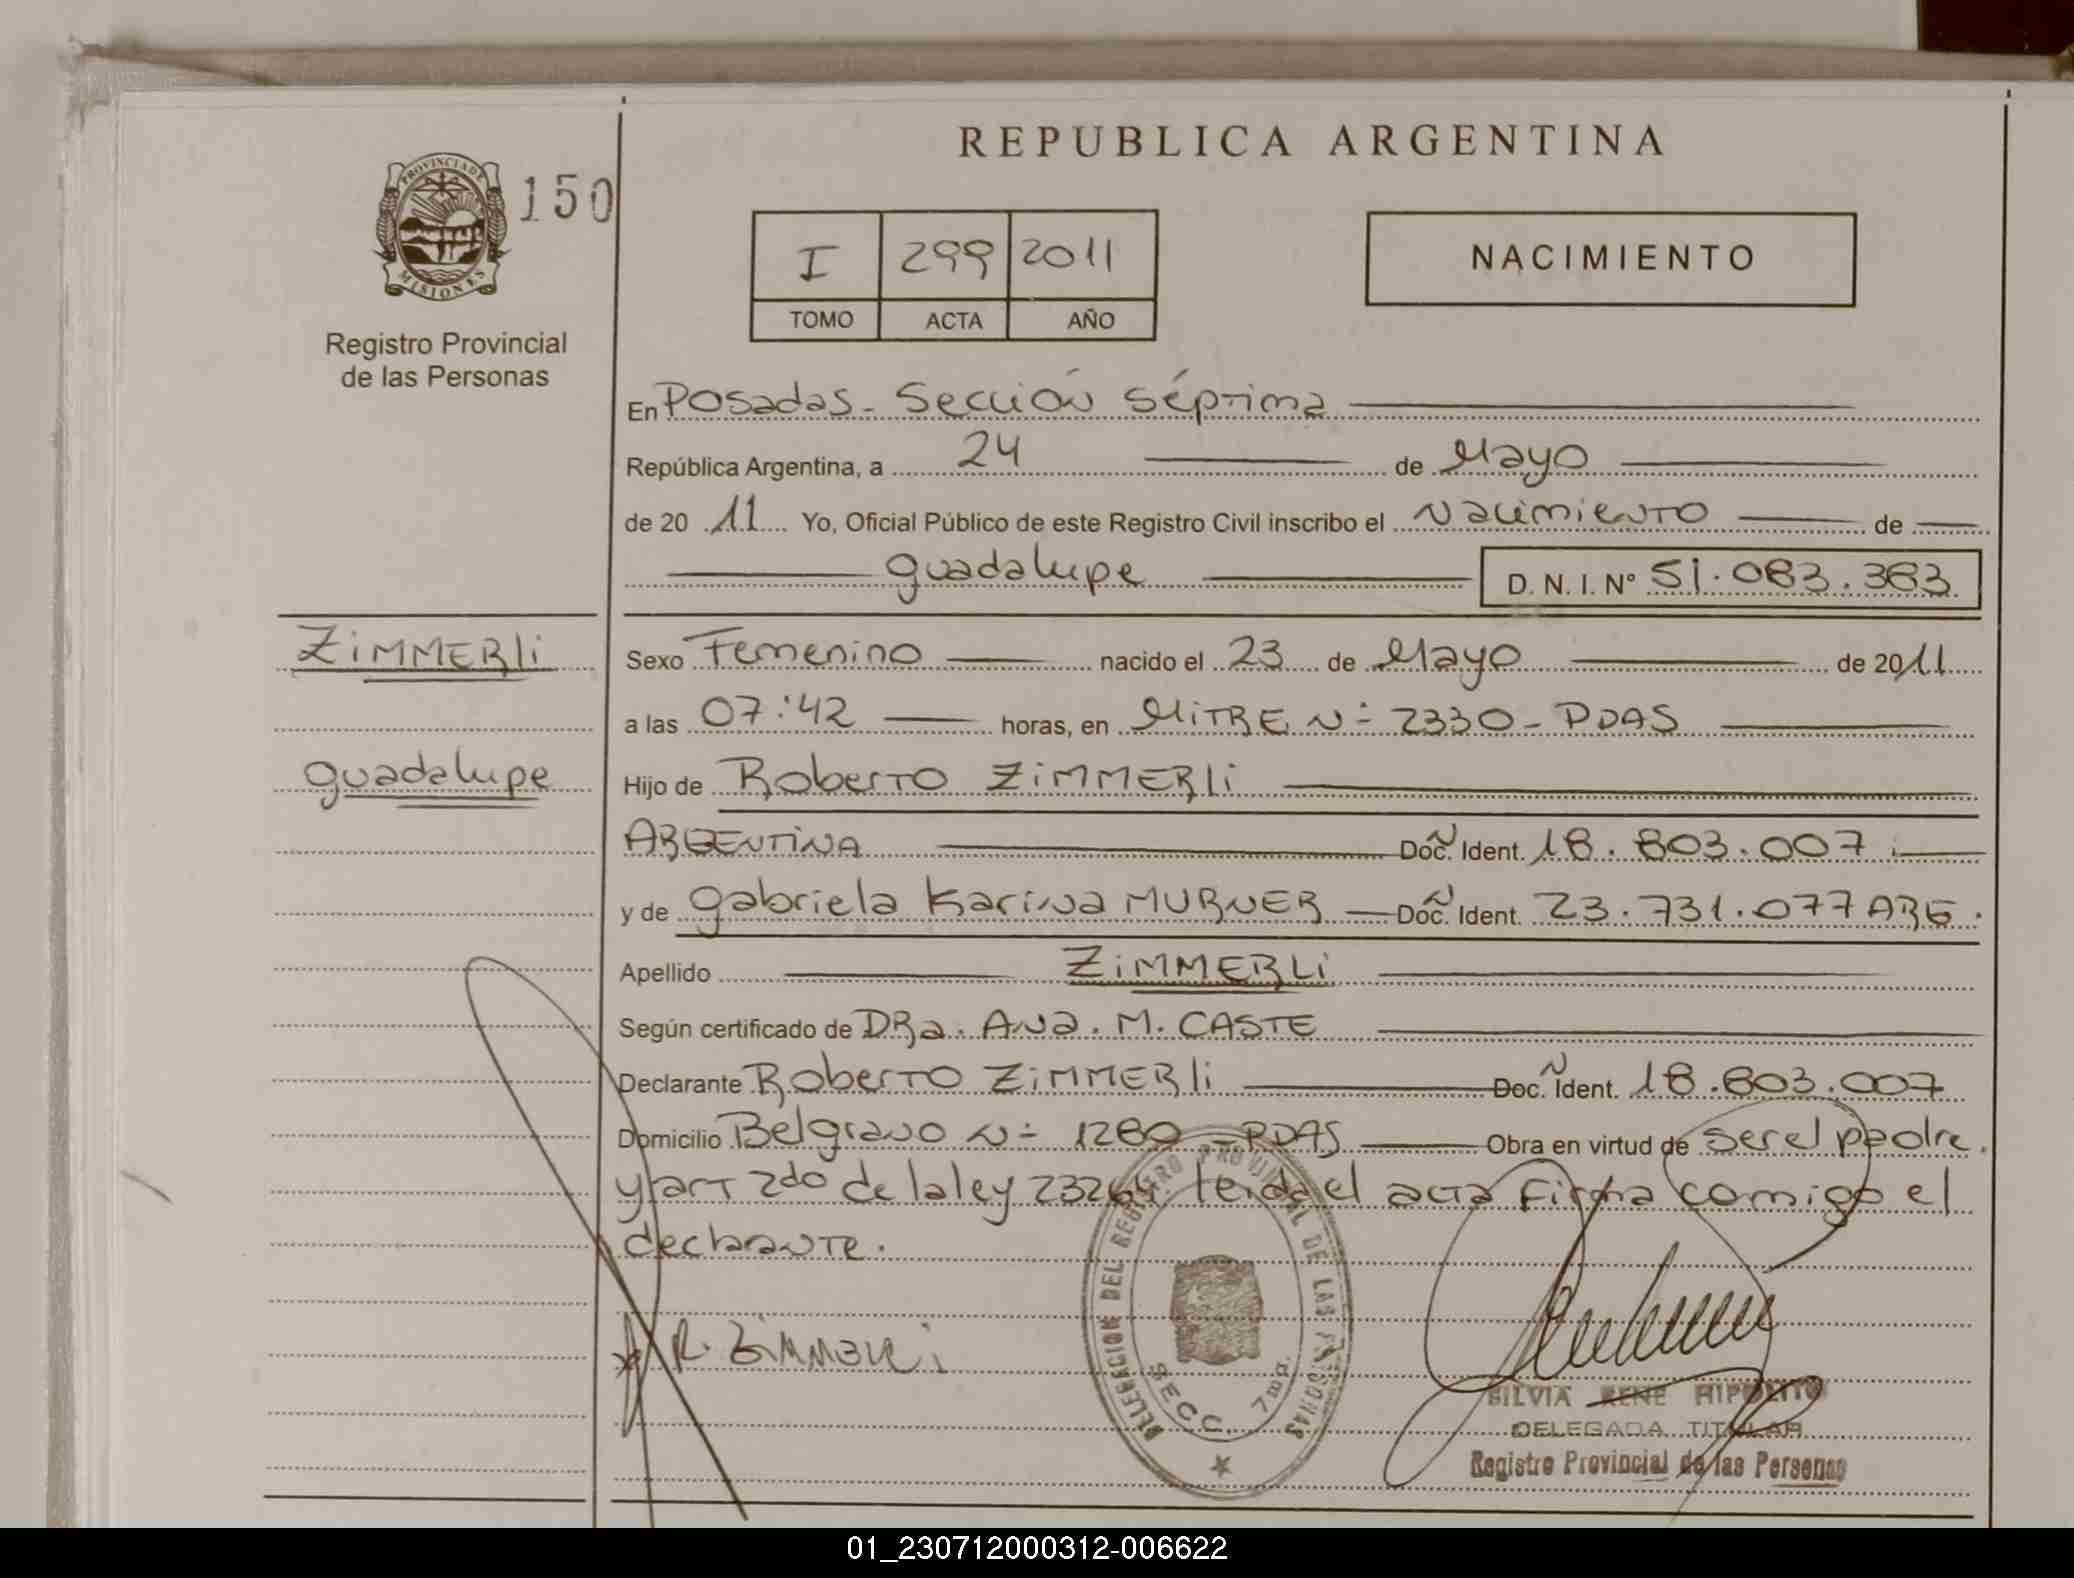 REPUBLICA ARGENTINA
PROVINCIA DE
MISIONES
150
Registro Provincial
de las Personas
I 299 2011
TOMO ACTA AÑO
NACIMIENTO
En Posadas - Sección Séptima
República Argentina, a 24 de Mayo
de 2011 Yo, Oficial Público de este Registro Civil inscribo el Nacimiento de
Guadalupe D. N. I. N° 51.083.383
ZiMMERLi
Guadalupe
Sexo Femenino nacido el 23 de Mayo de 2011
a las 07:42 horas, en MiTRE N° 2330 - PDAS
Hijo de Roberto ZiMMERli
ARGENTiNA Doc. Ident. 18.803.007
y de Gabriela Karina MURNER Doc. Ident. 23.731.077 ARG.
Apellido ZiMMERLi
Según certificado de DRa. Ana. M. CASTE
Declarante Roberto ZiMMERli Doc. Ident. 18.803.007
Domicilio Belgrano N° 1280 - PDAS Obra en virtud de ser el padre
y art 2do de la ley 23264. leida el acta firma comigo el
declarante.
R. Zimmerli
DELEGACION DEL REGISTRO PROVINCIAL DE LAS PERSONAS
SECC. 7ma.
SILVIA RENE HIPOLITO
DELEGADA TITULAR
Registro Provincial de las Personas
01_230712000312-006622